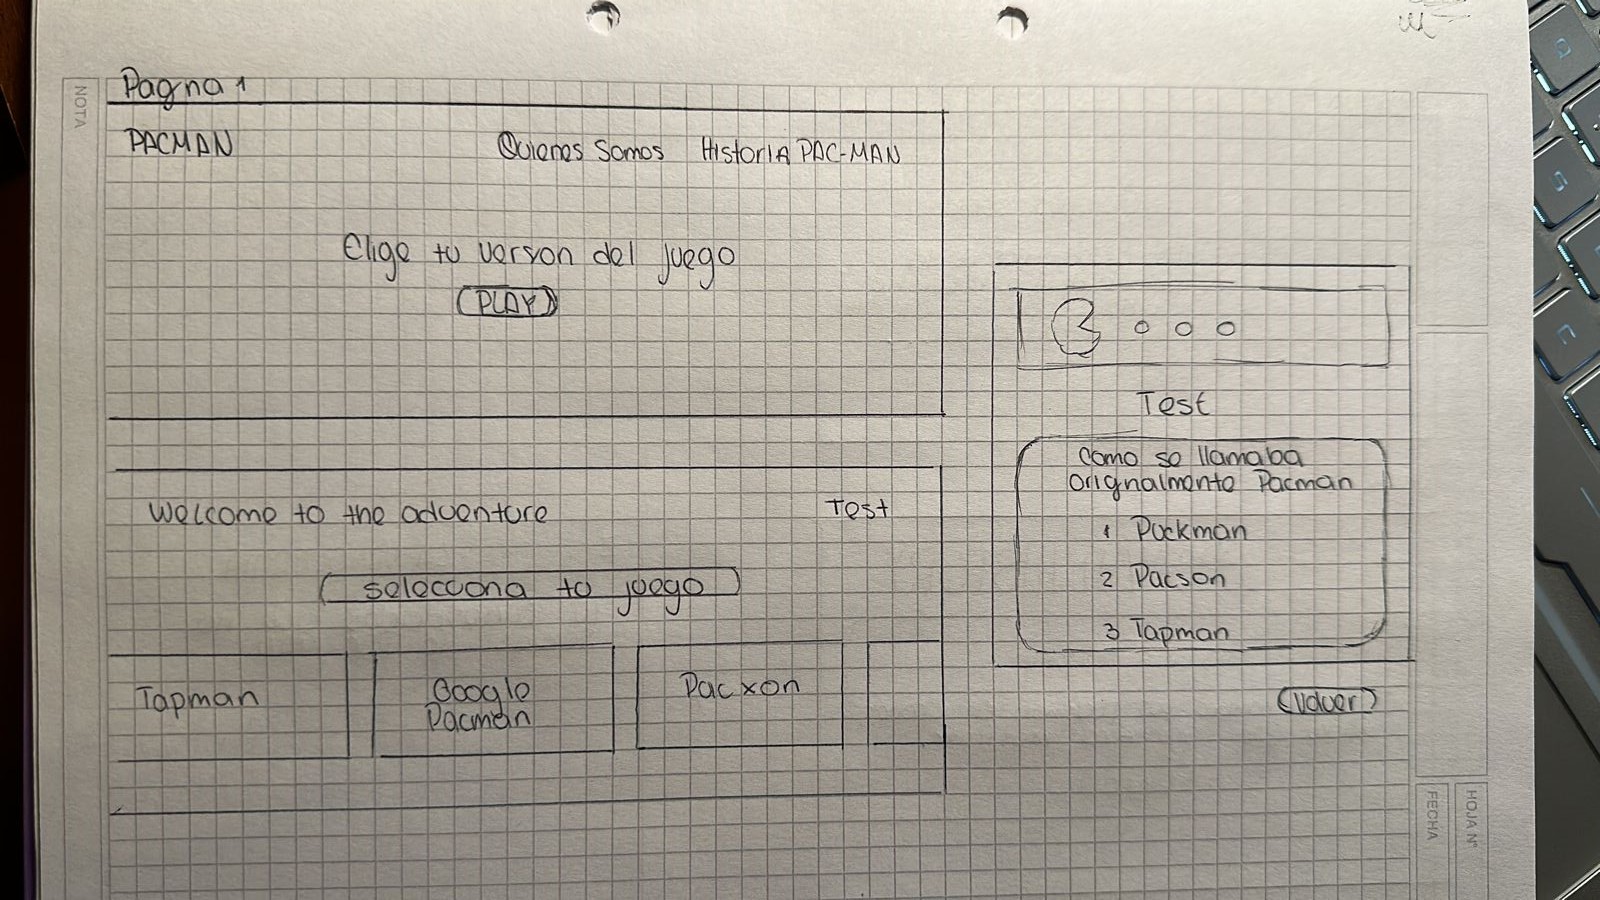 Pagna 1
PACMAN
Quienes Somos
Historia PAC-MAN
Elige tu verson del juego
PLAY
Welcome to the adventure
Test
selecciona tu juego
Tapman
Google
Pacman
Pacxon
Test
Como se llamaba
orignalmente Pacman
1 Puckman
2 Pacson
3 Tapman
Volver
NOTA
FECHA
HOJA N°
Q
S
C